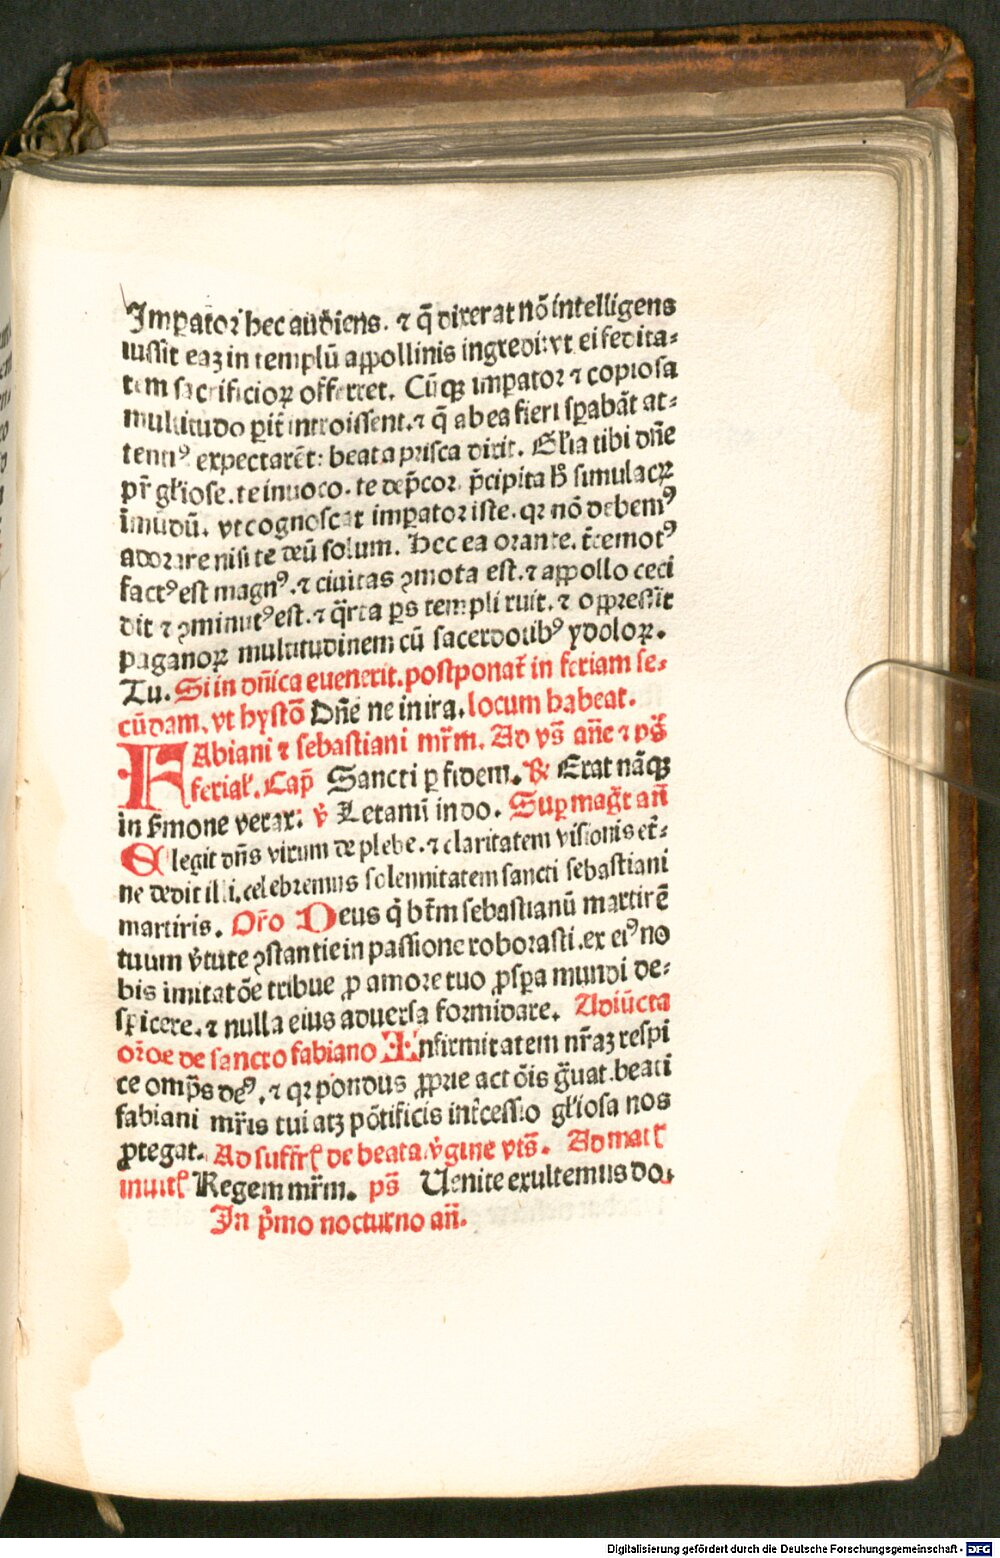 Imꝑator hec audiens. ⁊ q̄ dixerat nō intelligens
iussit eaꝫ in templū appollinis ingredi: vt ei fedita-
tem sacrificioꝝ offerret. Cūqꝫ imꝑator ⁊ copiosa
multitudo ꝑit̄ introissent. ⁊ q̄ ab ea fieri sꝑabāt at-
tentiꝰ expectarēt: beata prisca dixit. Gl̄ia tibi dn̄e
pr̄ gl̄iose. te inuoco. te dep̄cor. p̄cipita h̄ simulacꝝ
īmūdū. vt cognoscat imꝑator iste. qꝛ nō debemꝰ
adorare nisi te deū solum. Hec ea orante. t̄remotꝰ
factꝰ est magnꝰ. ⁊ ciuitas ꝯmota est. ⁊ appollo ceci
dit ⁊ ꝯminutꝰ est. ⁊ q̄rta ꝑs templi ruit. ⁊ oppressit
paganoꝝ multitudinem cū sacerdotibꝰ ydoloꝝ.
Tu. Si in dn̄ica euenerit. postponat̄ in feriam se-
cūdam. vt hystō Dn̄e ne in ira. locum habeat.
FAbiani ⁊ sebastiani mr̄m. Ad vs̄ an̄e ⁊ ps̄
ferial̄. Cap̄ Sancti ꝑ fidem. ℟ Erat nāqꝫ
in s̄mone verax: v̄ Letamī in do. Suꝑ maḡt an̄
Elegit dn̄s virum de plebe. ⁊ claritatem visionis et̄-
ne dedit illi. celebremus solennitatem sancti sebastiani
martiris. Or̄o Deus q̄ bt̄m sebastianū martirē
tuum v̄tute ꝯstantie in passione roborasti. ex eiꝰ no
bis imitatōe tribue ꝓ amore tuo ꝓsꝑa mundi de-
spicere. ⁊ nulla eius aduersa formidare. Adiūcta
or̄oe de sancto fabiano Infirmitatem nr̄aꝫ respi
ce omp̄s deꝰ. ⁊ qꝛ pondus ꝓprie actōis ḡuat. beati
fabiani mr̄is tui atꝫ pōtificis int̄cessio gl̄iosa nos
ꝓtegat. Ad suffr̄ꝭ de beata v̄gine vts̄. Ad matꝭ
inuitꝭ Regem mr̄m. ps̄ Uenite exultemus do.
In p̄mo nocturno an̄.
Digitalisierung gefördert durch die Deutsche Forschungsgemeinschaft - DFG